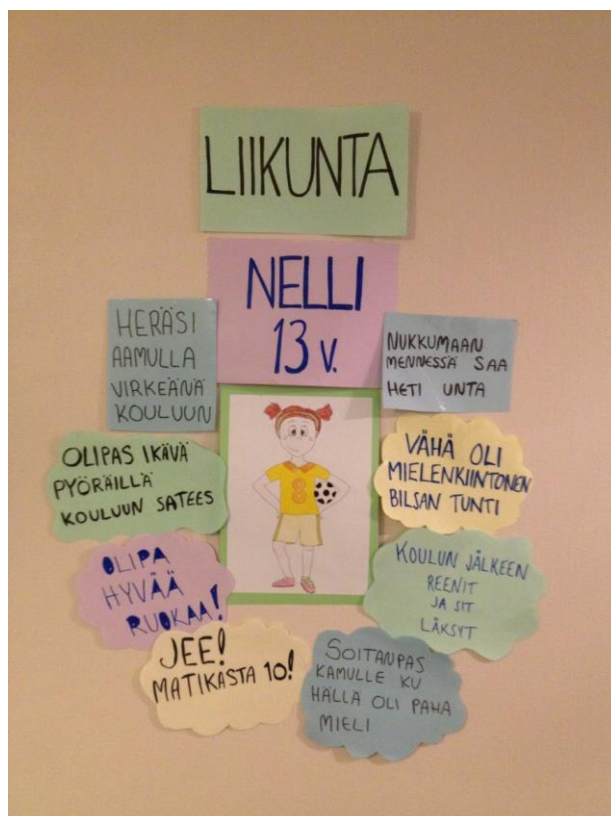 LIIKUNTA
NELLI
13 v.
HERÄSI
AAMULLA
VIRKEÄNÄ
KOULUUN
NUKKUMAAN
MENNESSÄ SAA
HETI UNTA
OLIPAS IKÄVÄ
PYÖRÄILLÄ
KOULUUN SATEES
8
VÄHÄ OLI
MIELENKIINTONEN
BILSAN TUNTI
OLIPA
HYVÄÄ
RUOKAA!
KOULUN JÄLKEEN
REENIT
JA SIT
LÄKSYT
JEE!
MATIKASTA 10!
SOITANPAS
KAMULLE KU
HÄLLÄ OLI PAHA
MIELI